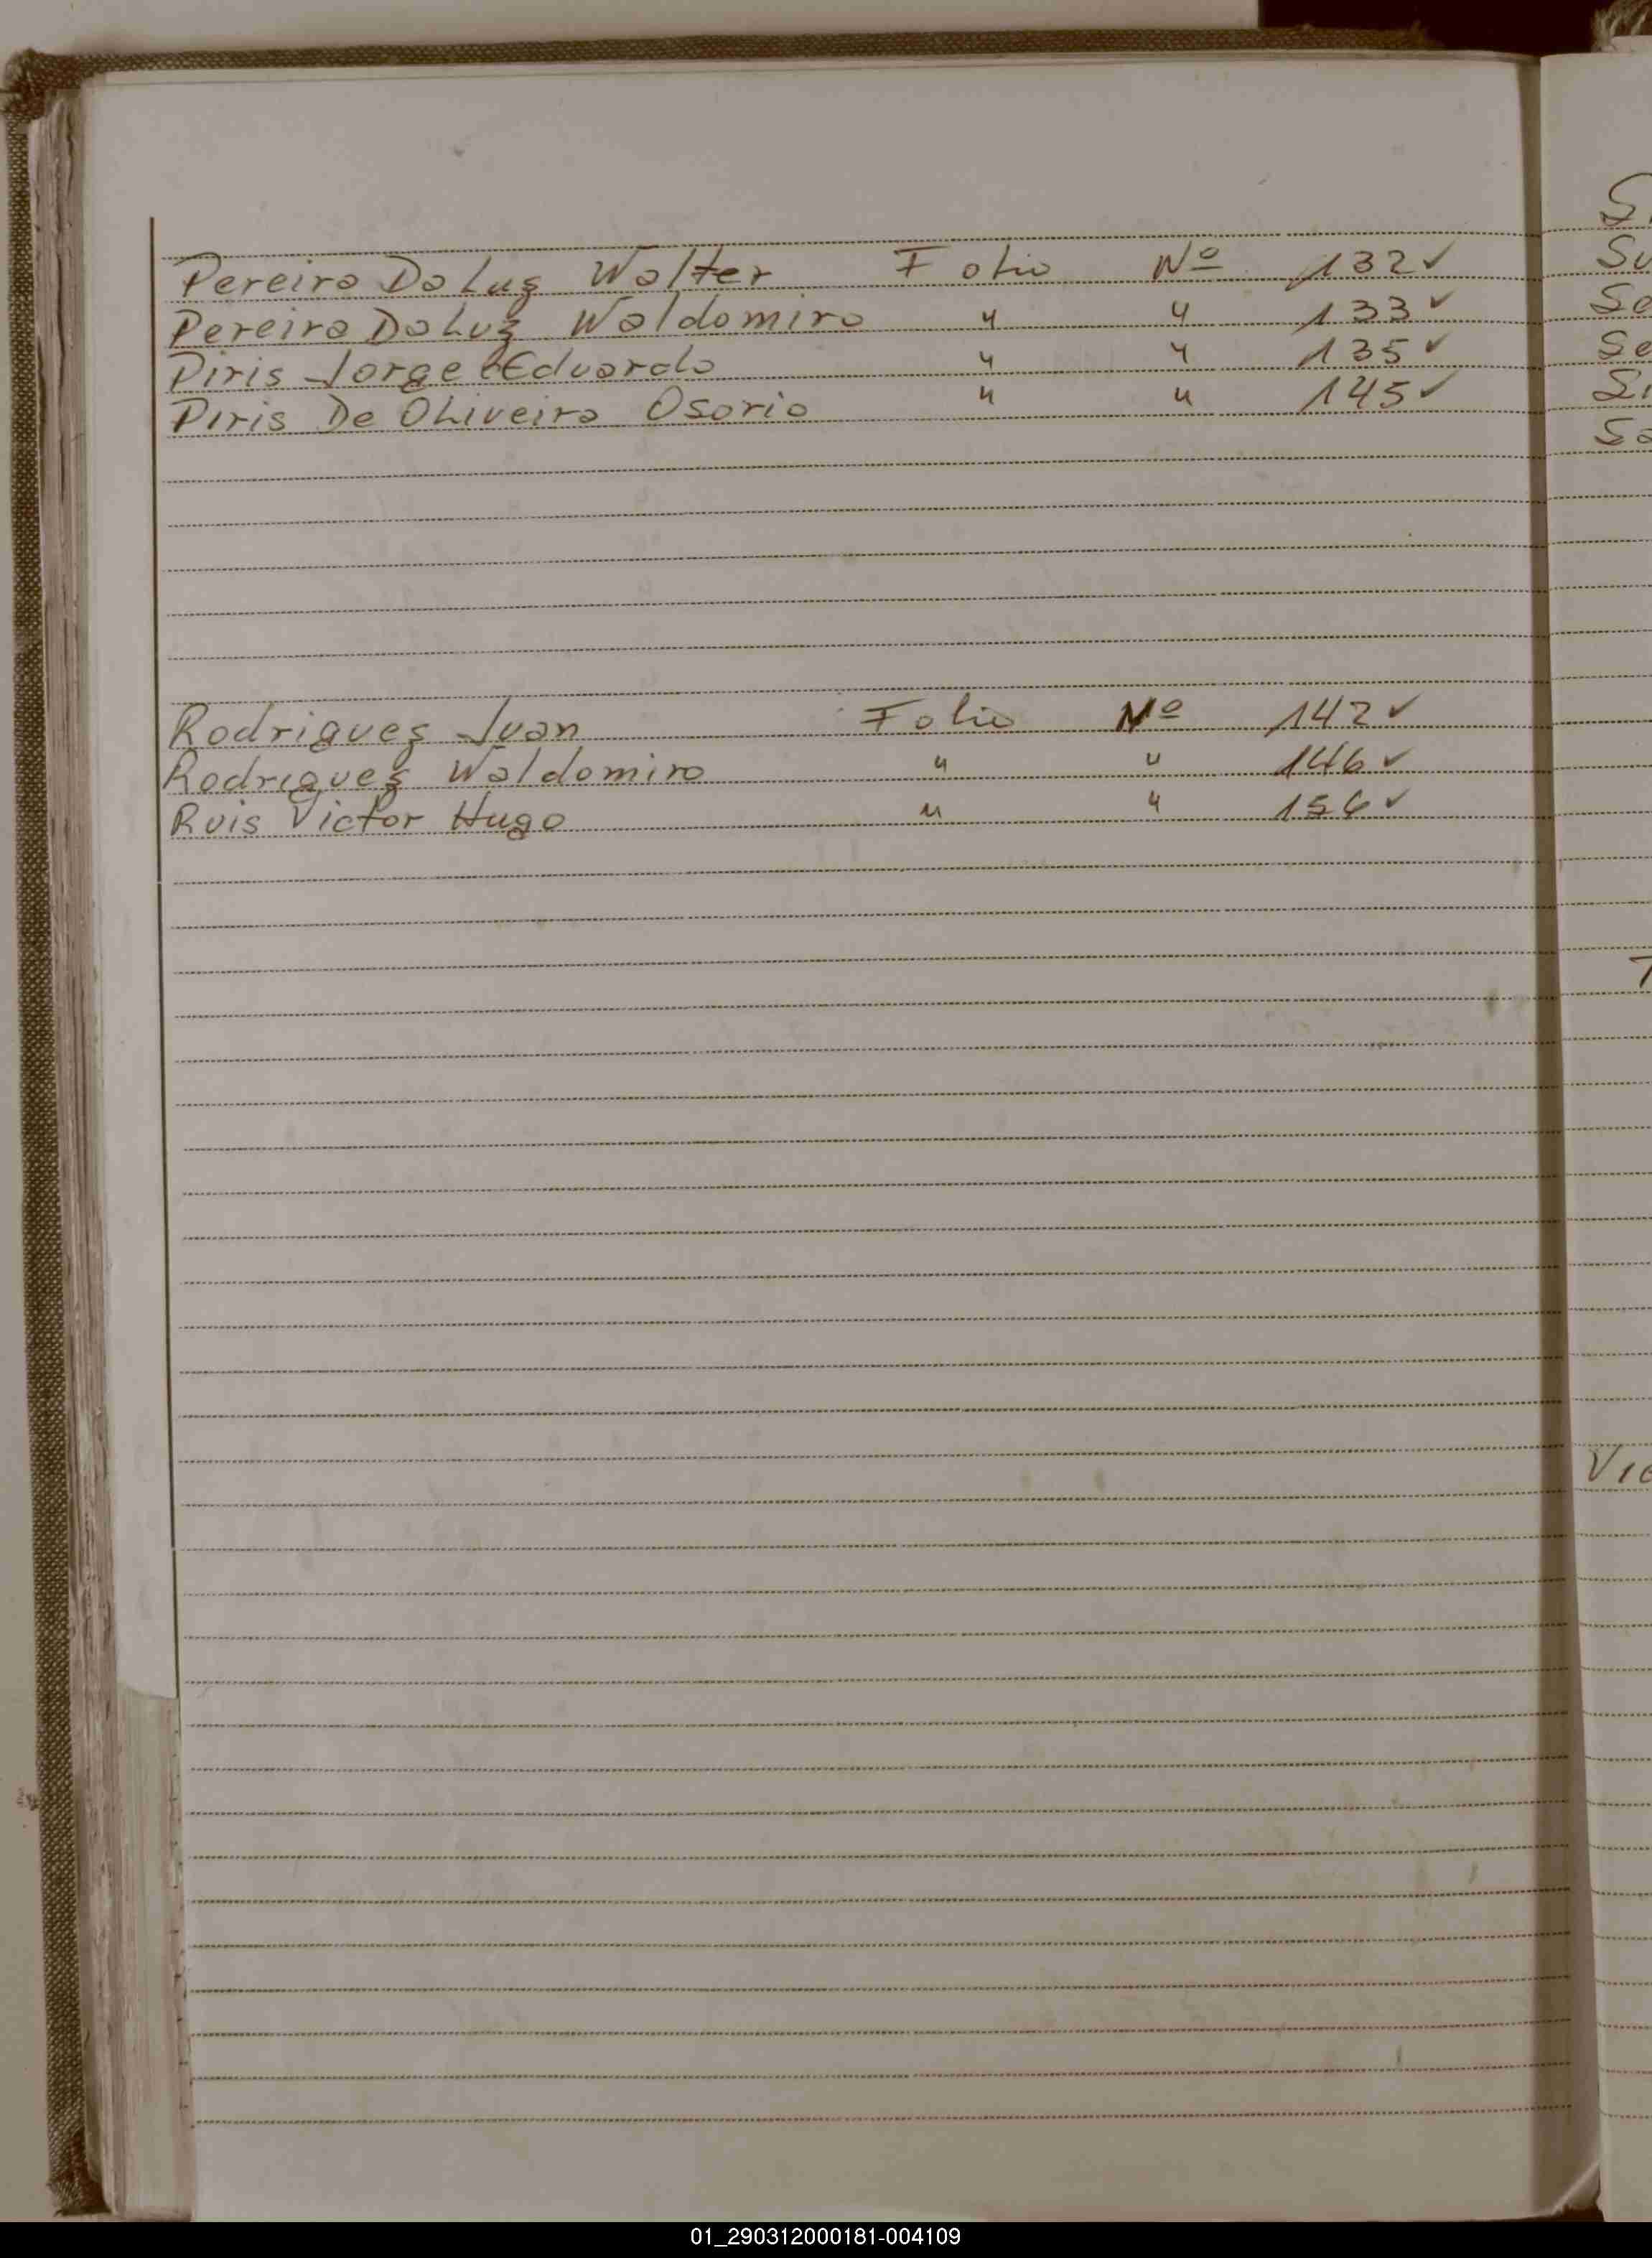 Pereira Da Luz Walter Folio Nº 132 ✓
Pereira Da Luz Waldomiro " " 133 ✓
Piris Jorge Eduardo " " 135 ✓
Piris De Oliveira Osorio " " 145 ✓
Rodriguez Juan Folio Nº 142 ✓
Rodriguez Waldomiro " " 146 ✓
Ruis Victor Hugo " " ✓
01_290312000181-004109